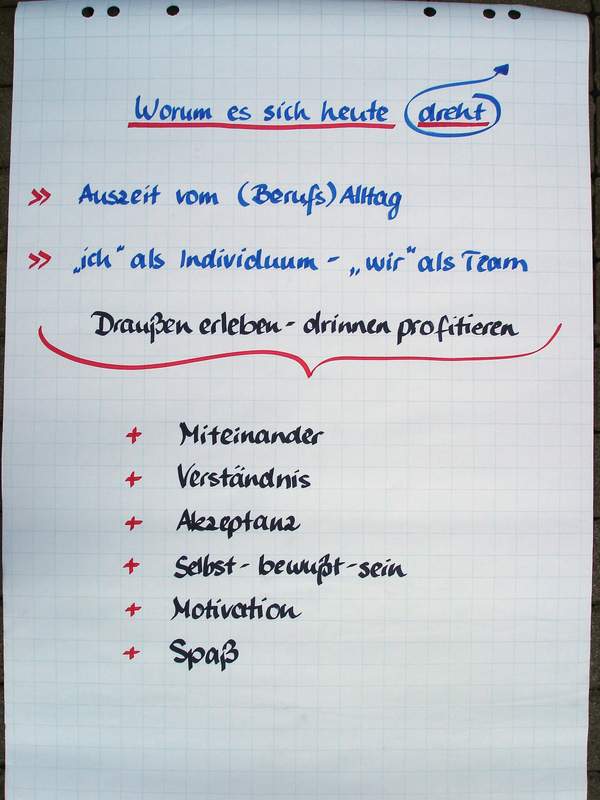 Worum es sich heute dreht
» Auszeit vom (Berufs)Alltag
» „ich" als Individuum - „wir" als Team
Draußen erleben - drinnen profitieren
+ Miteinander
+ Verständnis
+ Akzeptanz
+ Selbst-bewußt-sein
+ Motivation
+ Spaß